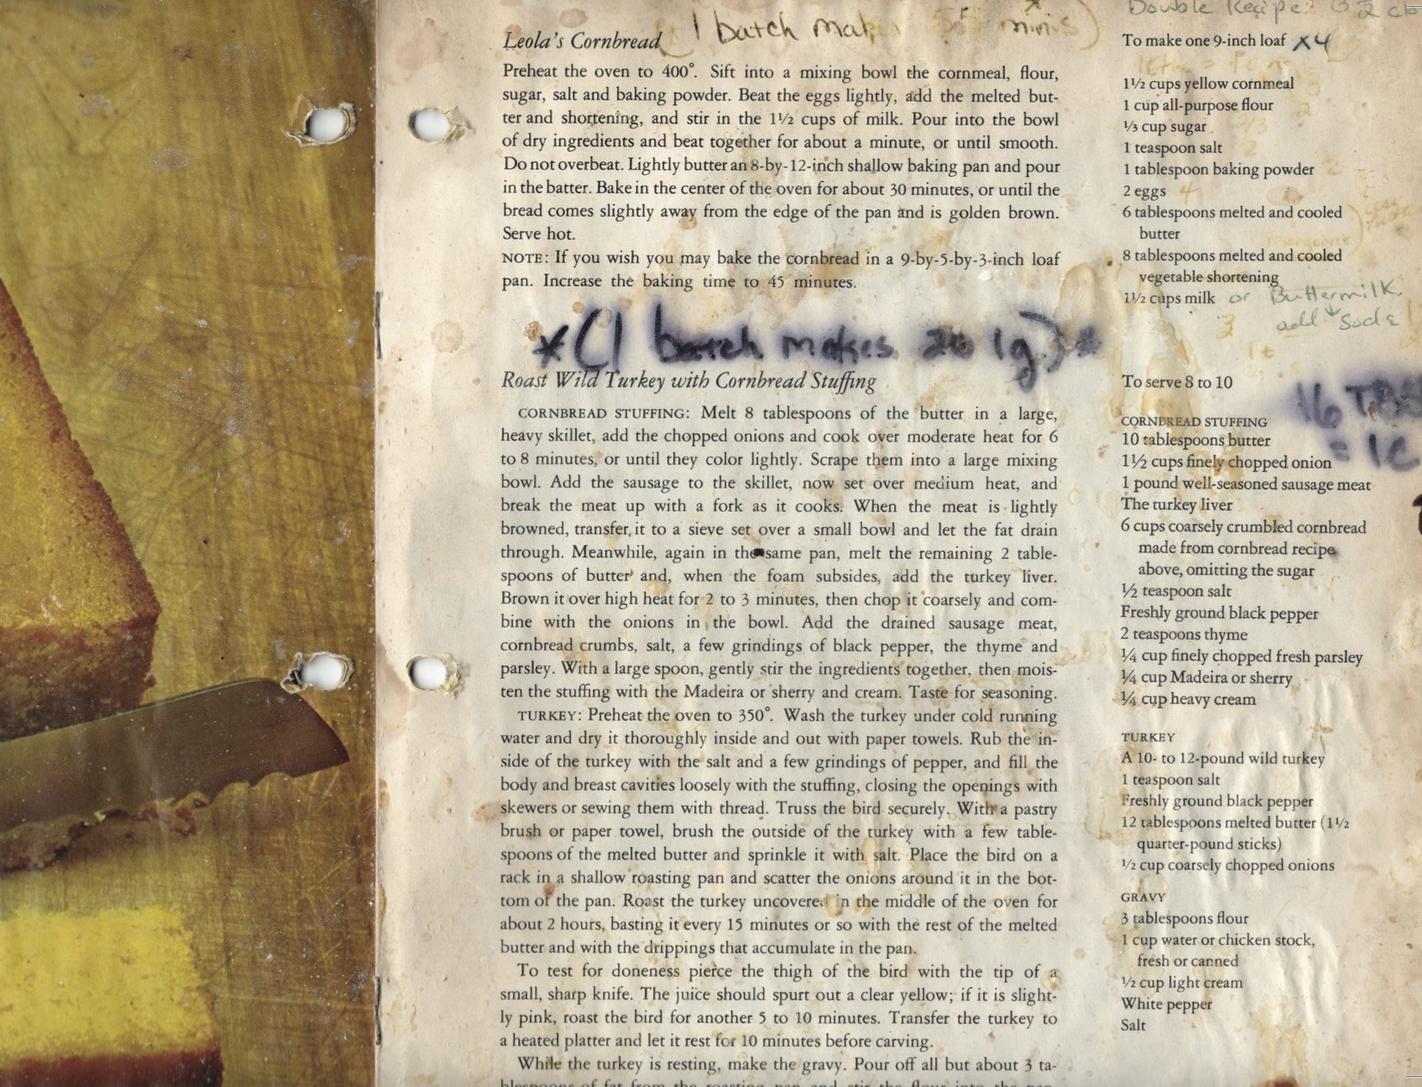 Leola's Cornbread (1 batch minis)
Preheat the oven to 400°. Sift into a mixing bowl the cornmeal, flour,
sugar, salt and baking powder. Beat the eggs lightly, add the melted but-
ter and shortening, and stir in the 1½ cups of milk. Pour into the bowl
of dry ingredients and beat together for about a minute, or until smooth.
Do not overbeat. Lightly butter an 8-by-12-inch shallow baking pan and pour
in the batter. Bake in the center of the oven for about 30 minutes, or until the
bread comes slightly away from the edge of the pan and is golden brown.
Serve hot.
NOTE: If you wish you may bake the cornbread in a 9-by-5-by-3-inch loaf
pan. Increase the baking time to 45 minutes.
Double Recipe:
To make one 9-inch loaf x4
1½ cups yellow cornmeal
1 cup all-purpose flour
⅓ cup sugar
1 teaspoon salt
1 tablespoon baking powder
2 eggs 4
6 tablespoons melted and cooled
butter
8 tablespoons melted and cooled
vegetable shortening
1½ cups milk or Buttermilk
3 add Soda!
*(1 batch makes 20 lg)*
Roast Wild Turkey with Cornbread Stuffing
CORNBREAD STUFFING: Melt 8 tablespoons of the butter in a large,
heavy skillet, add the chopped onions and cook over moderate heat for 6
to 8 minutes, or until they color lightly. Scrape them into a large mixing
bowl. Add the sausage to the skillet, now set over medium heat, and
break the meat up with a fork as it cooks. When the meat is lightly
browned, transfer it to a sieve set over a small bowl and let the fat drain
through. Meanwhile, again in the same pan, melt the remaining 2 table-
spoons of butter and, when the foam subsides, add the turkey liver.
Brown it over high heat for 2 to 3 minutes, then chop it coarsely and com-
bine with the onions in the bowl. Add the drained sausage meat,
cornbread crumbs, salt, a few grindings of black pepper, the thyme and
parsley. With a large spoon, gently stir the ingredients together, then mois-
ten the stuffing with the Madeira or sherry and cream. Taste for seasoning.
TURKEY: Preheat the oven to 350°. Wash the turkey under cold running
water and dry it thoroughly inside and out with paper towels. Rub the in-
side of the turkey with the salt and a few grindings of pepper, and fill the
body and breast cavities loosely with the stuffing, closing the openings with
skewers or sewing them with thread. Truss the bird securely. With a pastry
brush or paper towel, brush the outside of the turkey with a few table-
spoons of the melted butter and sprinkle it with salt. Place the bird on a
rack in a shallow roasting pan and scatter the onions around it in the bot-
tom of the pan. Roast the turkey uncovered in the middle of the oven for
about 2 hours, basting it every 15 minutes or so with the rest of the melted
butter and with the drippings that accumulate in the pan.
To test for doneness pierce the thigh of the bird with the tip of a
small, sharp knife. The juice should spurt out a clear yellow; if it is slight-
ly pink, roast the bird for another 5 to 10 minutes. Transfer the turkey to
a heated platter and let it rest for 10 minutes before carving.
While the turkey is resting, make the gravy. Pour off all but about 3 ta-
blespoons of fat from the roasting pan and stir the flour into the pan.
To serve 8 to 10
16 TBS
= 1C
CORNBREAD STUFFING
10 tablespoons butter
1½ cups finely chopped onion
1 pound well-seasoned sausage meat
The turkey liver
6 cups coarsely crumbled cornbread
made from cornbread recipe
above, omitting the sugar
½ teaspoon salt
Freshly ground black pepper
2 teaspoons thyme
¼ cup finely chopped fresh parsley
¼ cup Madeira or sherry
¼ cup heavy cream
TURKEY
A 10- to 12-pound wild turkey
1 teaspoon salt
Freshly ground black pepper
12 tablespoons melted butter (1½
quarter-pound sticks)
½ cup coarsely chopped onions
GRAVY
3 tablespoons flour
1 cup water or chicken stock,
fresh or canned
½ cup light cream
White pepper
Salt